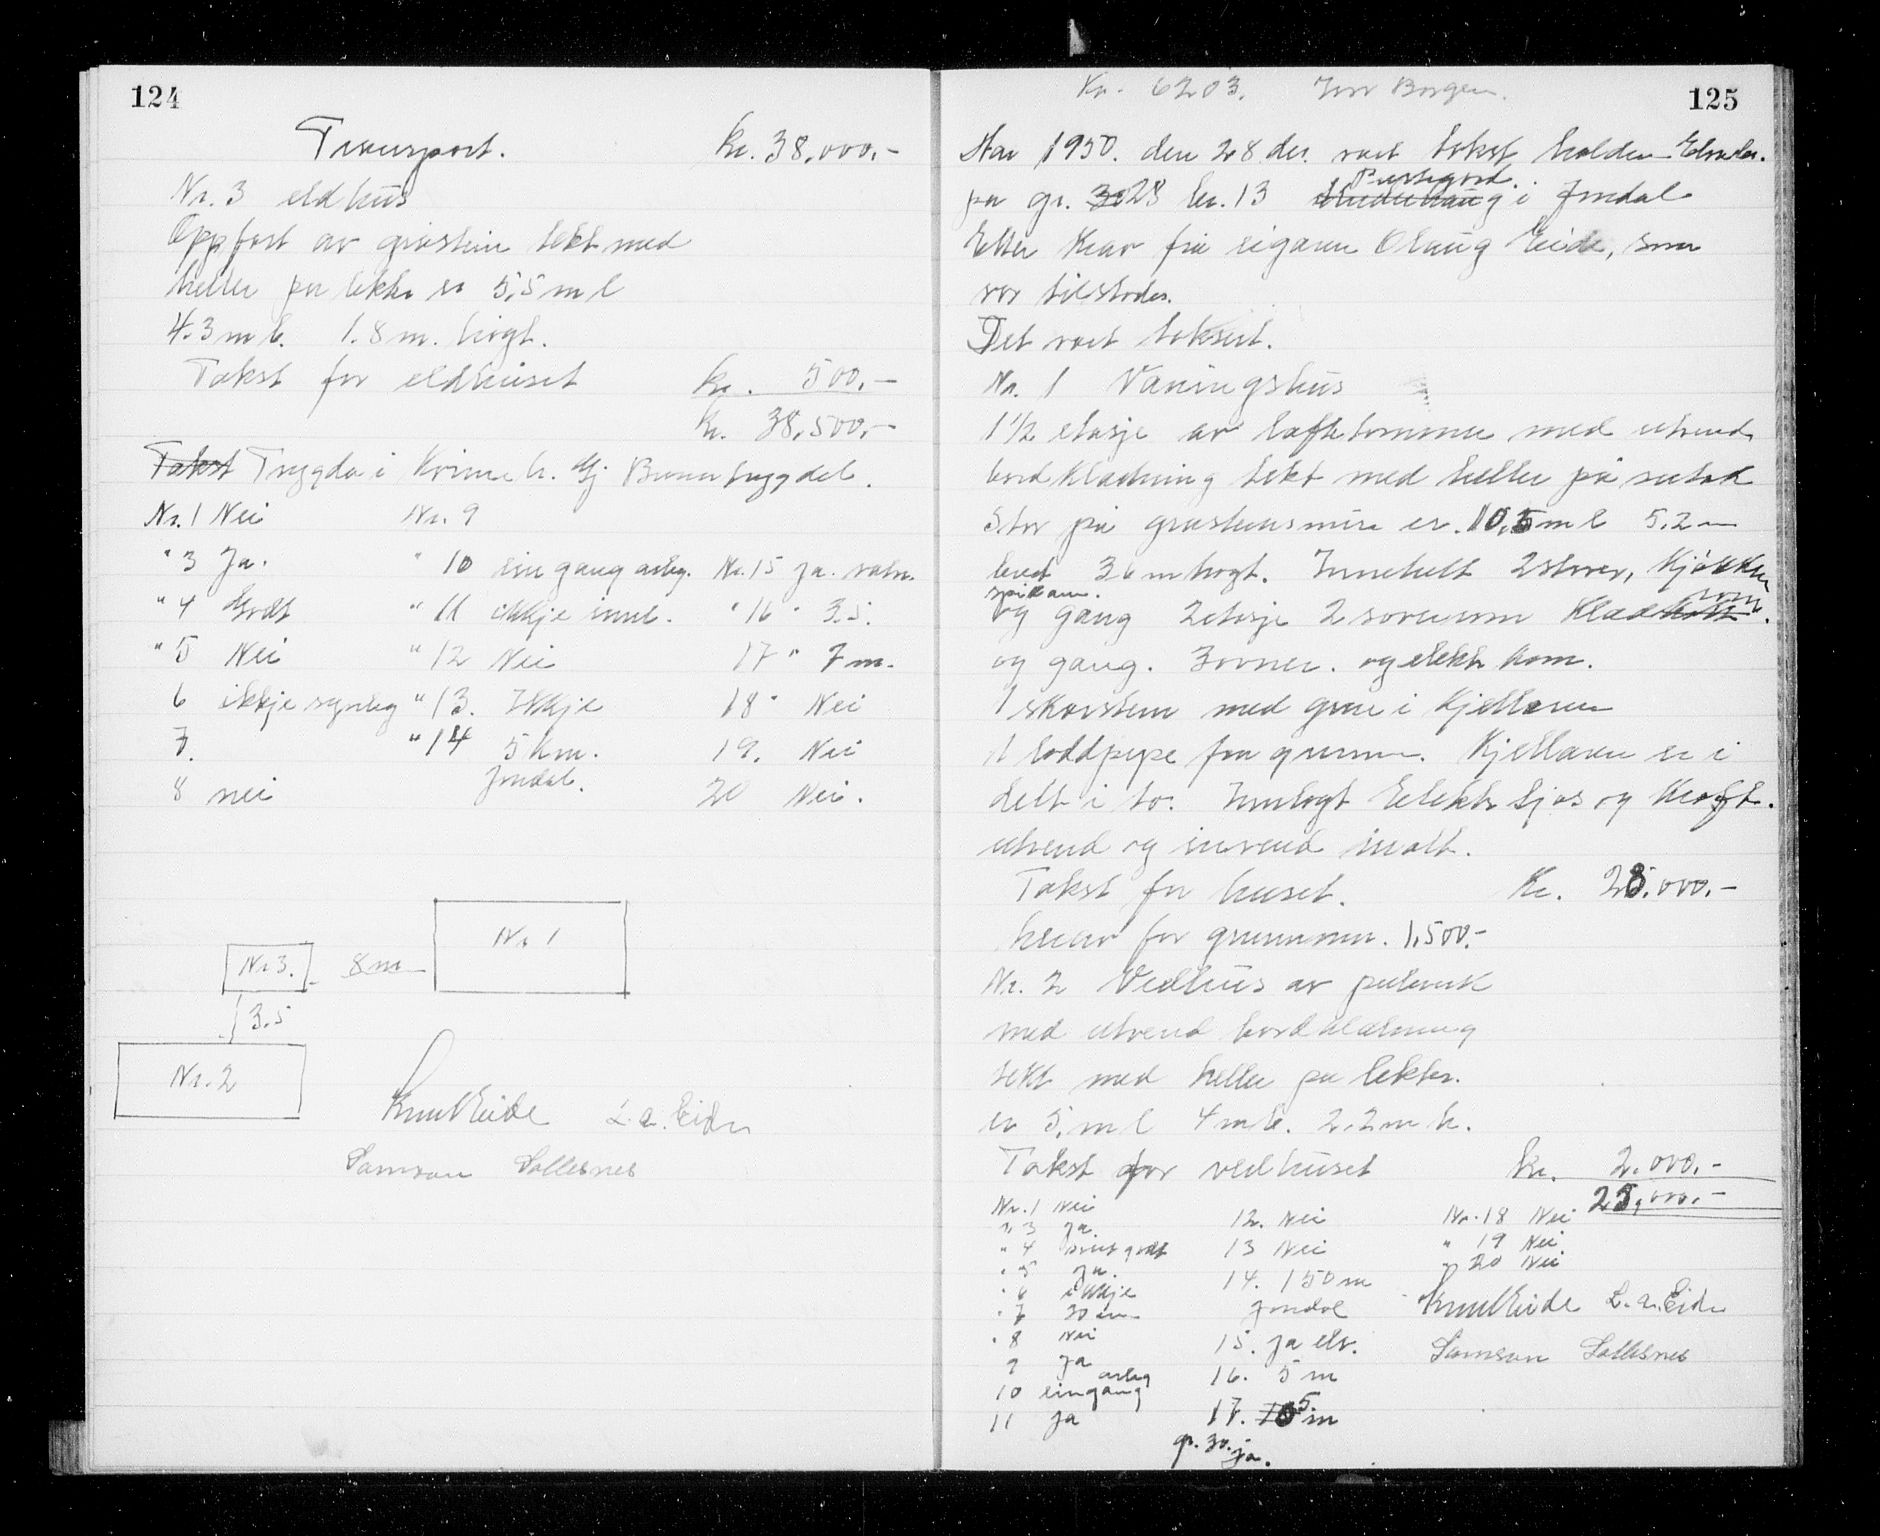 124
Transport. kr. 38,000.-
Nr. 3 eldhus
Oppført av gråstein tekt med
heller på lekter er 5,5 m l
4.3 m b. 1.8 m. høgt.
Takst for eldhuset kr. 500.-
kr. 38,500.-
Takst Trygda i Brunatrygdel.
Nr. 1 Nei Nr. 9
" 3 Ja. " 10 ein gang årleg. Nr. 15 ja. vatn.
" 4 Godt " 11 ikkje innl. " 16 " 3.5.
" 5 Nei " 12 Nei 17 " 7 m.
6 ikkje synleg " 13. Ikkje 18 " Nei
7. " 14 5 km. 19. Nei
Jondal.
8 nei 20 Nei.
Nr 1
Nr 3. 8 m
3.5
Nr. 2
Knut Eide L. A. Eide
Samson Sollesnes
125
Kr. 6203. Borgen.
År 1950. den 28 des. vart takst halden
Purkegård.
på gr. 30 28 br. 13 i Jondal
Etter krav frå eigaren Olaug Eide, som
var tilstades.
Det vart taksert.
Nr. 1 Våningshus
1 1/2 etasje av laftetømmer med utvend
bordkledning tekt med heller på sutak
Stor på gråsteinsmur er. 10,5 m l 5.2 m
bred 3 6 m høgt. Innehelt 2 stover, kjøkken
spiskam. rom
og gang 2 etasje 2 soverom Klædekott.
og gang. 3 ovner. og elektr kom.
1 skorstein med grue i kjellaren
1 loddpipe fra grunn. Kjellaren er i
delt i to. Innlagt Elektr ljos og kraft.
utvend og invend malt.
Takst for huset. Kr. 23.000.-
herav for grunnmur. 1,500.-
Nr. 2 Vedhus av
med utvend bordklædning
tekt med heller på lekter.
er 5. m l 4 m b. 2.2 m h.
Takst for vedhuset kr. 2.000.-
25,000.-
Nr. 1 Nei 12. Nei Nr. 18 Nei
" 3 ja. 13 Nei " 19 Nei
" 4 godt 14. 150 m " 20 Nei
" 5 ja. Jondal Knut Eide L. A. Eide
" 6 ikkje 15. ja elv. Samson Sollesnes
" 7 30 cm 16. 5 m
" 8 Nei 17. 10 5 m
9 ja gr. 30. ja.
10 eingang årleg
11 ja